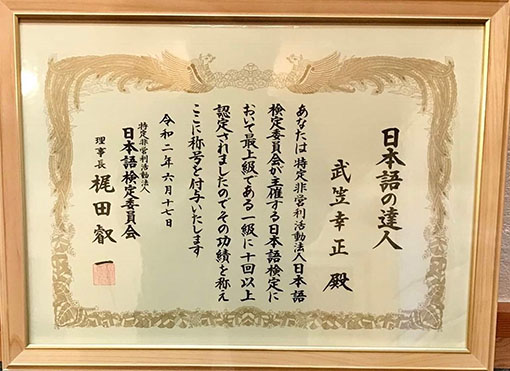 日本語の達人
武笠幸正 殿
あなたは 特定非営利活動法人日本語
検定委員会が主催する日本語検定に
おいて最上級である一級に十回以上
認定されましたのでその功績を称え
ここに称号を付与いたします
令和二年六月十七日
特定非営利活動法人
日本語検定委員会
理事長 梶田叡一